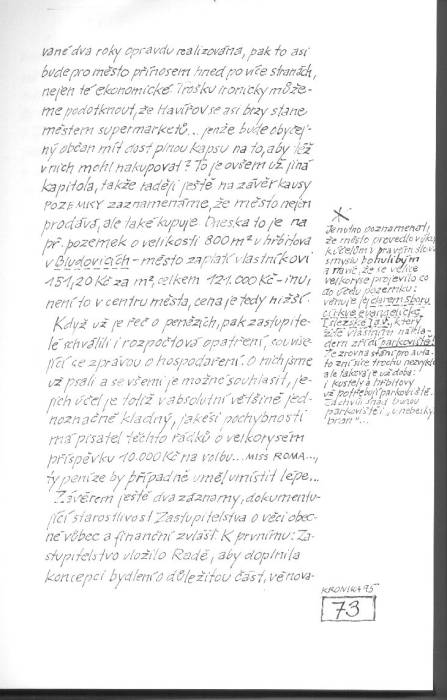 vané dva roky opravdu realizována, pak to asi
bude pro město přínosem hned po více stranách,
nejen té ekonomické. Trošku ironicky může-
me podotknout, že Havířov se asi brzy stane
městem supermarketů... jenže bude obyčej-
ný občan mít dost plnou kapsu na to, aby též
v nich mohl nakupovat? To je ovšem už jiná
kapitola, takže raději ještě na závěr kausy
POZEMKY zaznamenáme, že město nejen
prodává, ale také kupuje. Dneska to je na
př. pozemek o velikosti 800 m² u hřbitova
v Bludovicích - město zaplatí vlastníkovi
151,20 Kč za m², celkem 121.000 Kč - inu,
není to v centru města, cena je tedy nižší.
Když už je řeč o penězích, pak zastupite-
lé schválili i rozpočtová opatření, souvise-
jící se zprávou o hospodaření. O nich jsme
už psali a se všemi je možné souhlasit, je-
jich účel je totiž v absolutní většině jed-
noznačně kladný, jakési pochybnosti
má pisatel těchto řádků o velkorysém
příspěvku 10.000 Kč na volbu... MISS ROMA...,
ty peníze by případně uměl umístit lépe...
Závěrem ještě dva záznamy, dokumentu-
jící starostlivost Zastupitelstva o věci obec-
né vůbec a finanční zvlášť. K prvnímu: Za-
stupitelstvo uložilo Radě, aby doplnila
koncepci bydlení o důležitou část, věnova-
Je nutno poznamenat,
že město provedlo
v pravém slova
smyslu bohulibým
a navíc, že se velice
velkoryse projevilo co
do úředu pozemku:
věnuje jej darem sboru
církve evangelické
slezské a.v., který
zde vlastním nákla-
dem zřídí parkoviště!
že zrovna stání pro auta
to zní sice trochu nezvykle
ale taková je už doba:
i kostely a hřbitovy
už potřebují parkoviště.
Za chvíli snad budou
parkoviště i "u nebeských
bran"...
KRONIKA 95
73